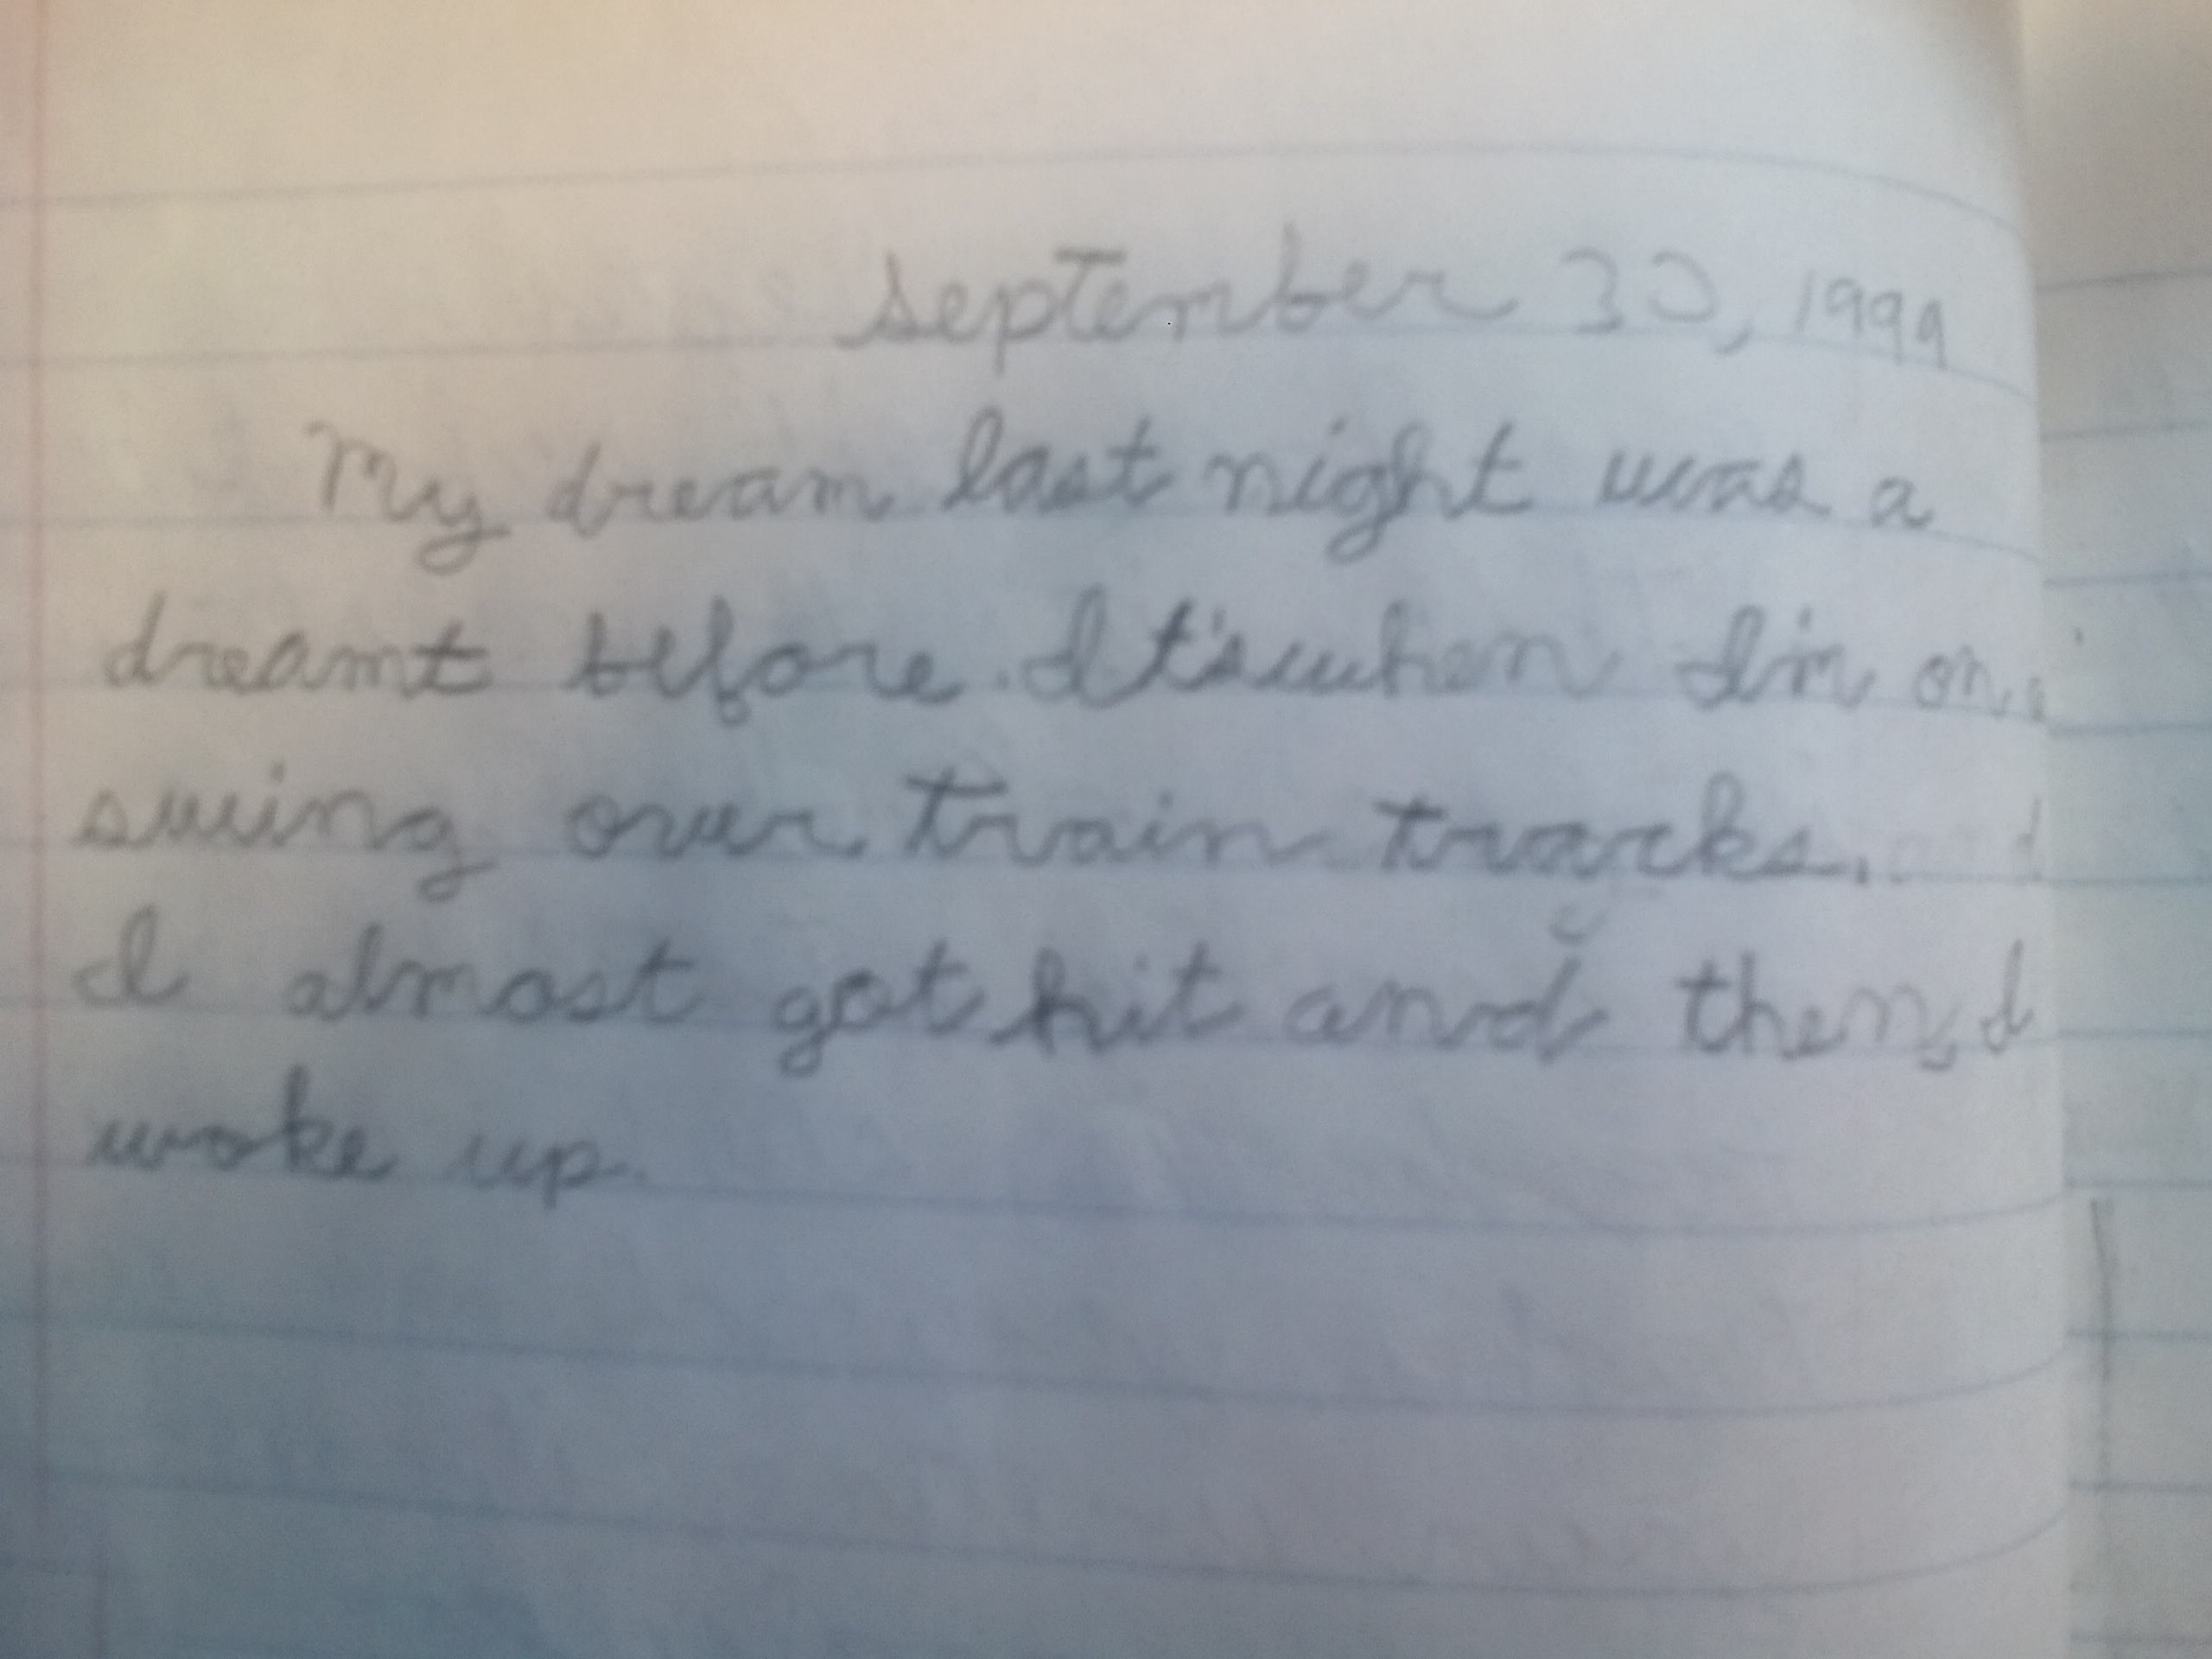 September 30, 1999
My dream last night was a
dreamt before. It's when I'm on a
swing over train tracks.
I almost got hit and then, I
woke up.